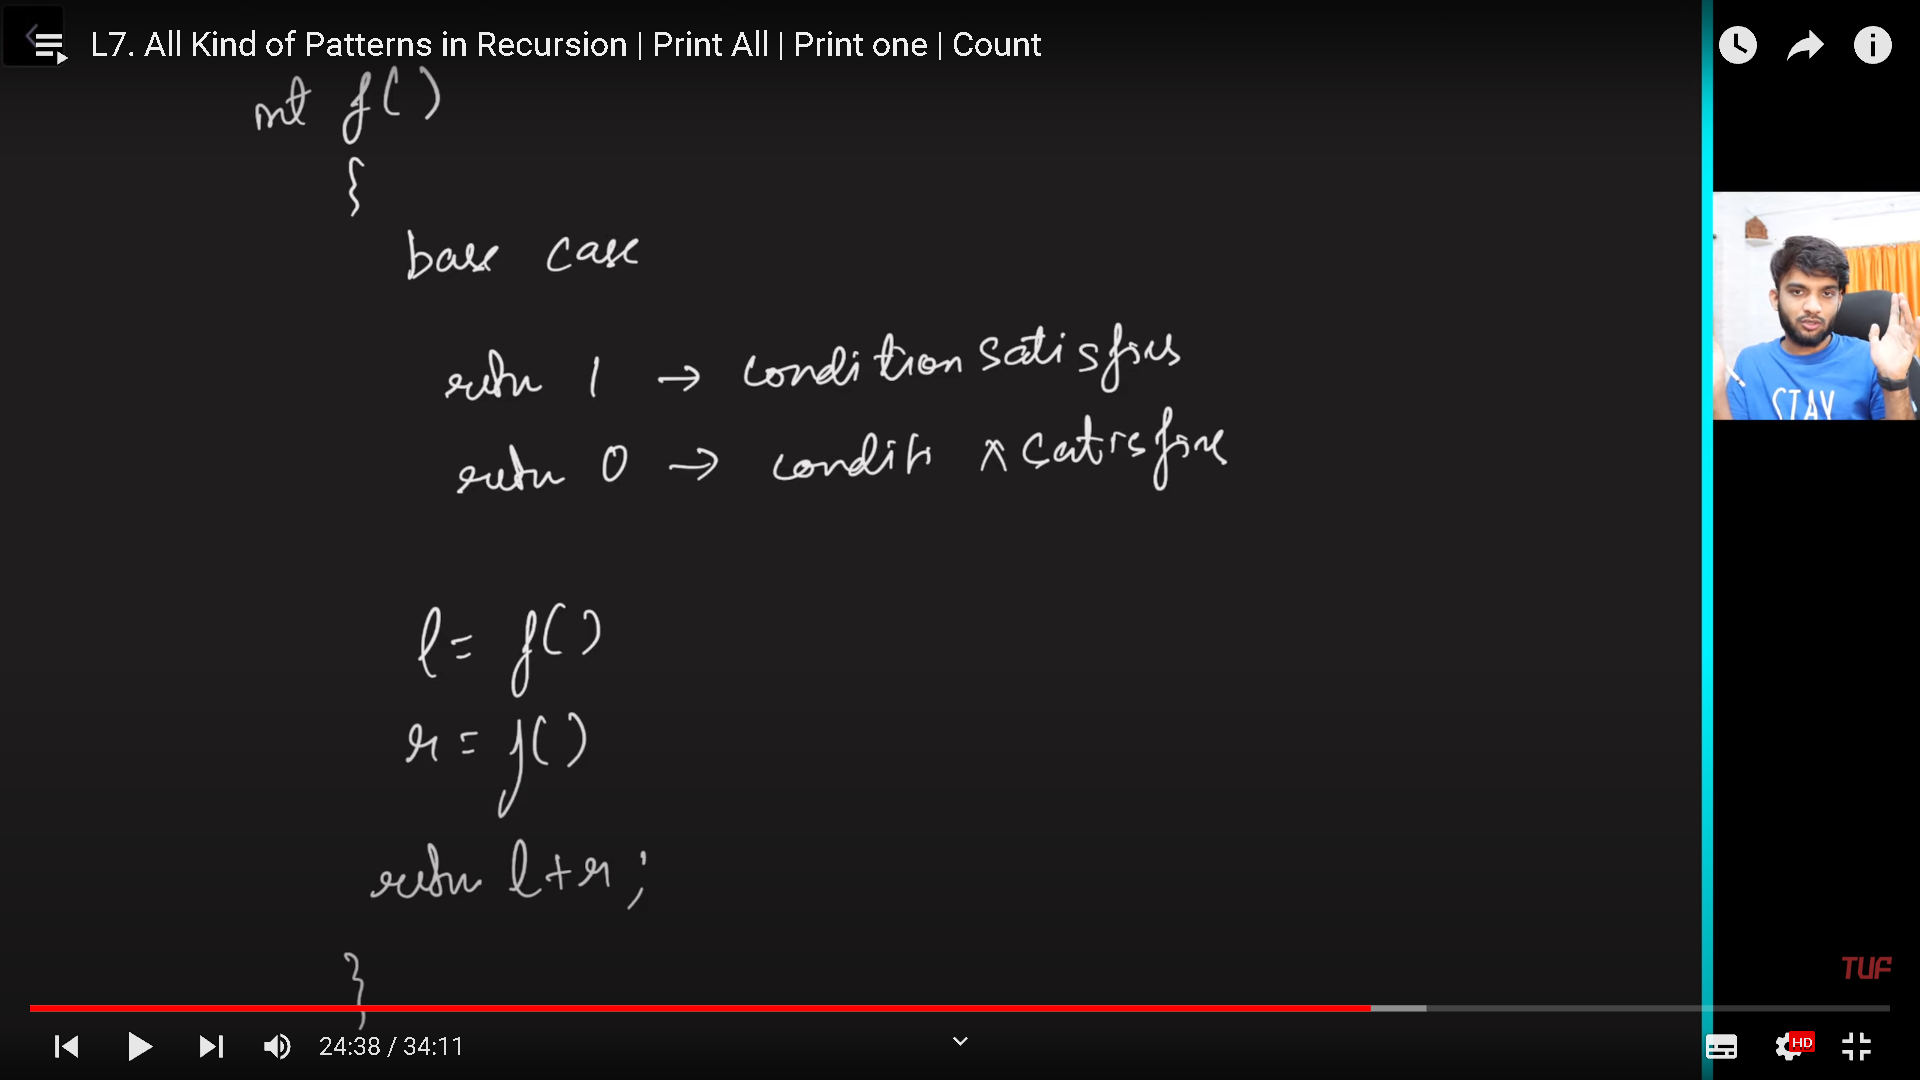 L7. All Kind of Patterns in Recursion | Print All | Print one | Count
int f()
{
base case
return 1 → condition satisfies
return 0 → conditi x satisfies
l = f()
r = f()
return l+r;
}
STAY
TUF
24:38 / 34:11
HD